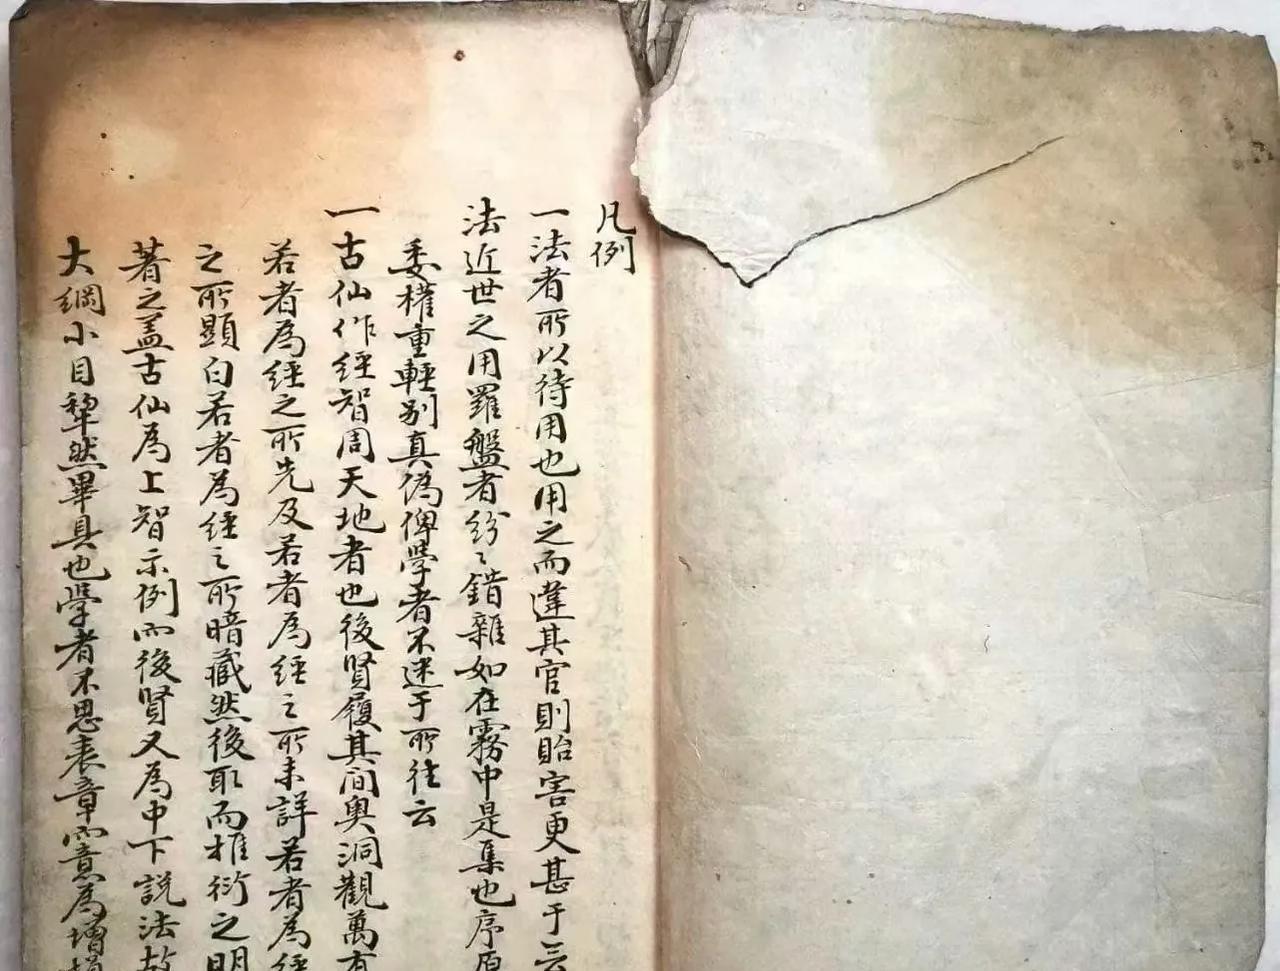 凡例
一法者所以待用也用之而違其官則貽害更甚于
法近世之用羅盤者紛〻錯雜如在霧中是集也序原
委權重輕別真偽俾學者不迷于所往云
一古仙作經智周天地者也後賢履其間奧洞觀萬有
若者為經之所先及若者為經之所未詳若者為經
之所顯白若者為經之所暗藏然後取而推衍之明
著之蓋古仙為上智示例而後賢又為中下說法故
大綱小目犂然畢具也學者不思表章而意為增損